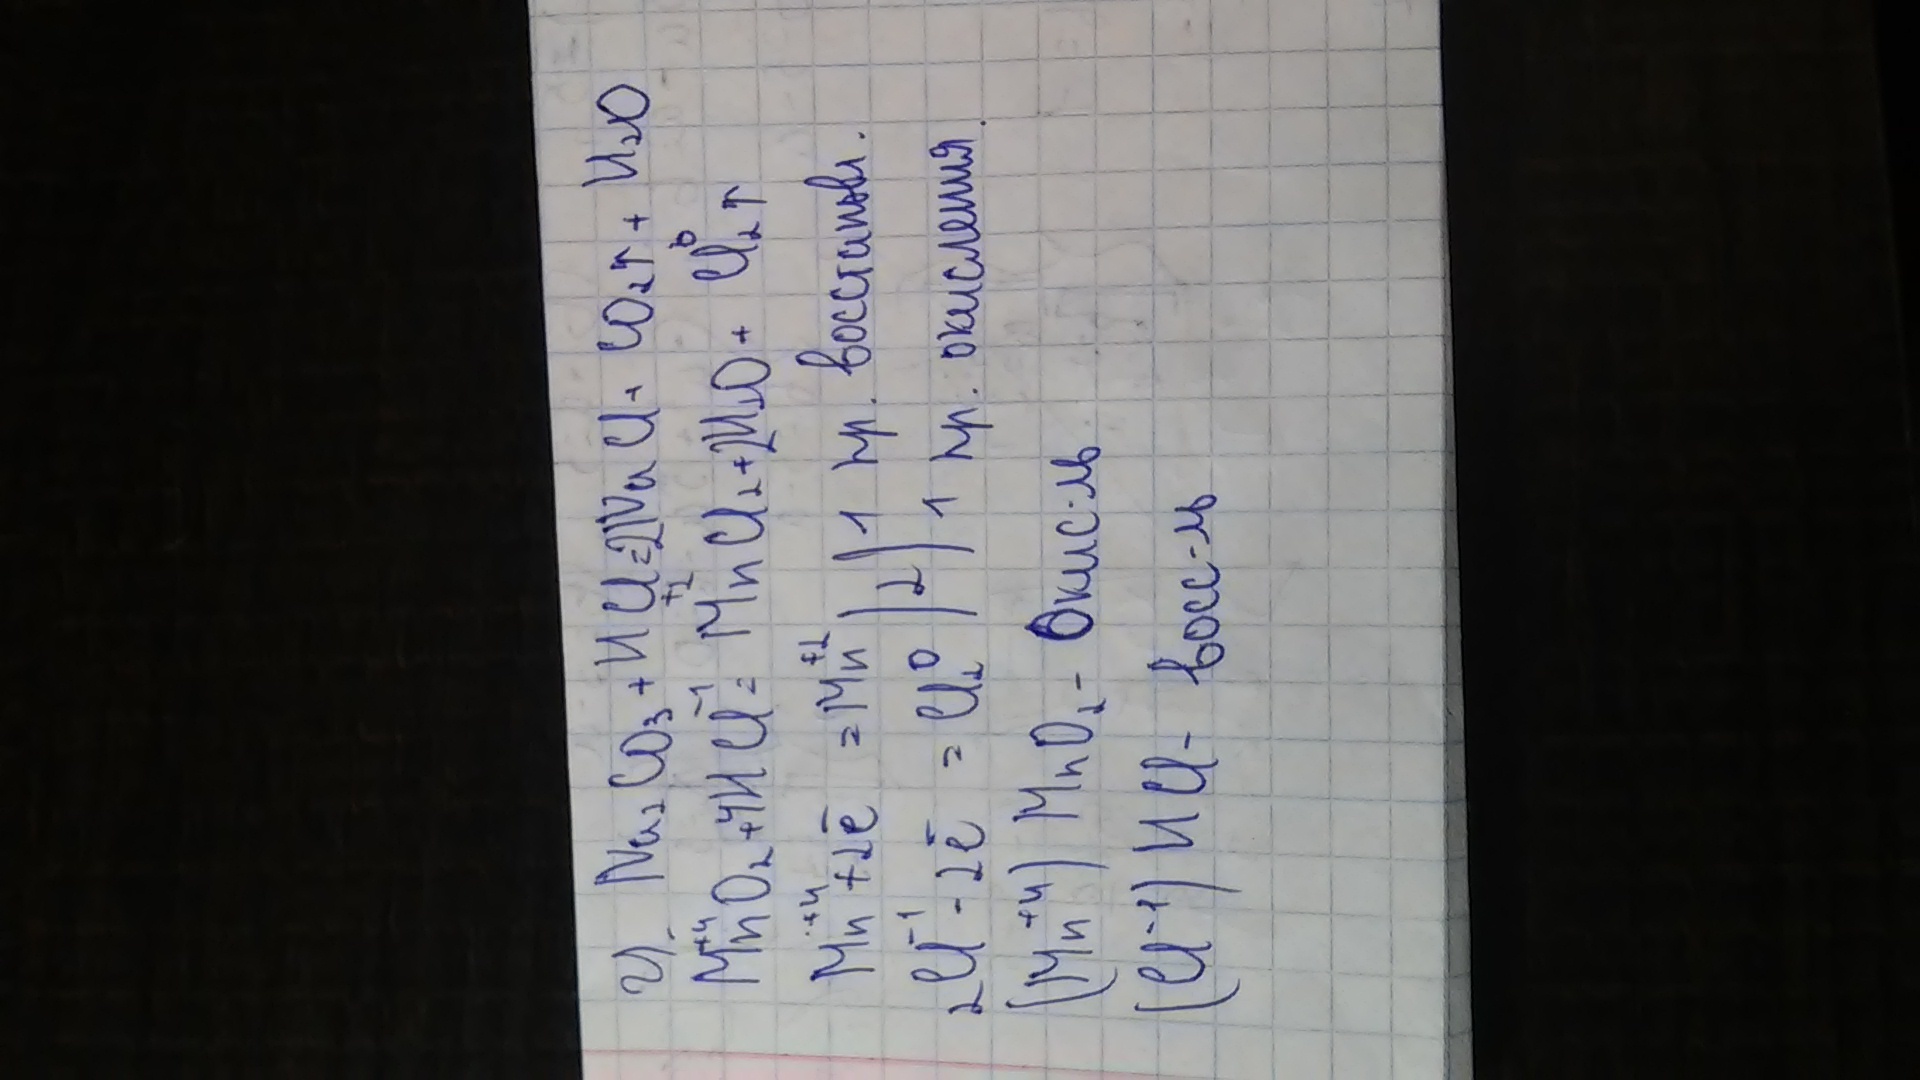 2). Na₂CO₃ + HCl = 2NaCl + CO₂↑ + H₂O
Mn⁺⁴O₂ + 4HCl⁻¹ = Mn⁺²Cl₂ + 2H₂O + Cl₂⁰↑
Mn⁺⁴ + 2ē = Mn⁺² | 2 | 1 пр. восстановл.
2Cl⁻¹ - 2ē = Cl₂⁰ | | 1 пр. окисления.
(Mn⁺⁴) MnO₂ - Окис-ль
(Cl⁻¹) HCl - восс-ль